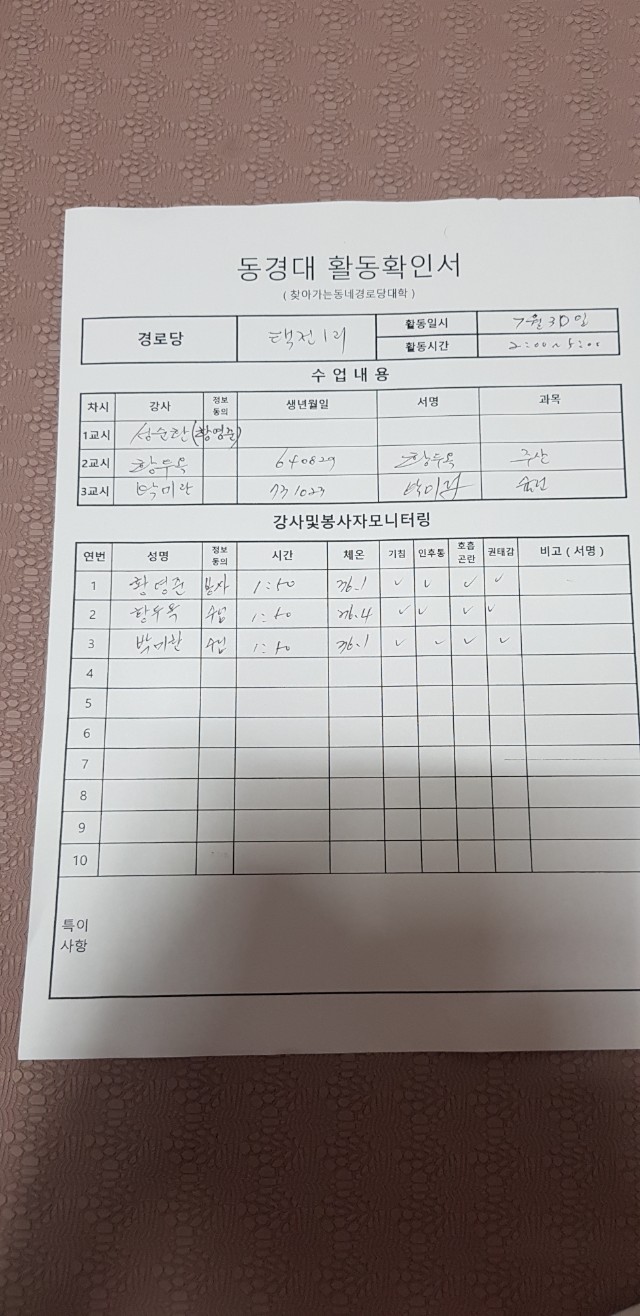 동경대 활동확인서
( 찾아가는동네경로당대학 )
경로당 택전1리 활동일시 7월 30일
활동시간 2:00~5:00
수 업 내 용
차시 강사 정보동의 생년월일 서명 과목
1교시 성순란 (황영준)
2교시 황두옥 640829 황두옥 주산
3교시 박미란 731023 박미란
강사및봉사자모니터링
연번 성명 정보동의 시간 체온 기침 인후통 호흡곤란 권태감 비고 ( 서명 )
1 황영준 봉사 1:50 36.1 ✓ ✓ ✓ ✓
2 황두옥 수업 1:50 36.4 ✓ ✓ ✓ ✓
3 박미란 수업 1:50 36.1 ✓ ✓ ✓ ✓
4
5
6
7
8
9
10
특이
사항